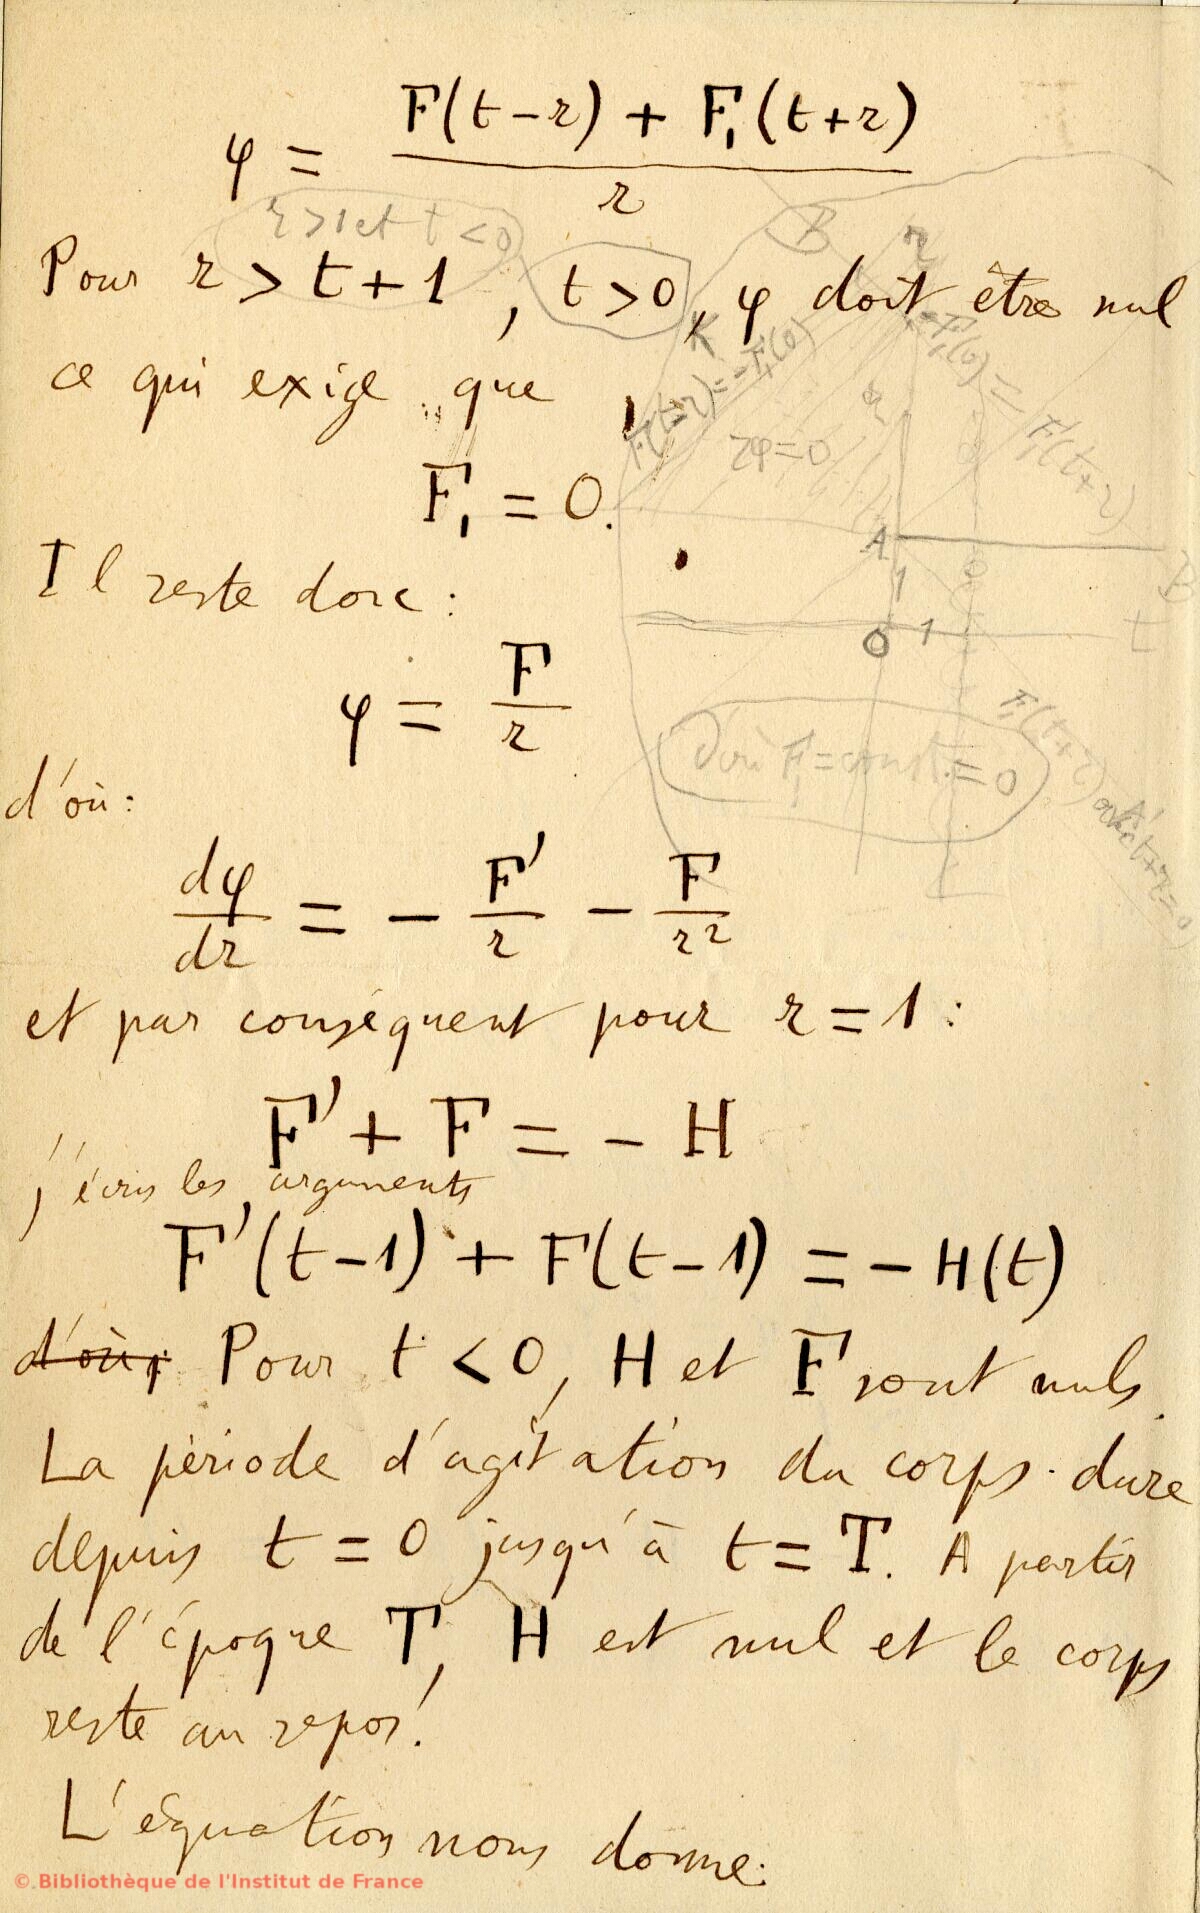 φ = (F(t−r) + F₁(t+r)) / r
r > 1 et t < 0
Pour r > t + 1, t > 0, φ doit être nul
ce qui exige que
F₁ = 0.
Il reste donc :
φ = F / r
d'où F₁ = const. = 0
d'où :
dφ/dr = − F'/r − F/r²
et par conséquent pour r = 1 :
F' + F = − H
j'écris les arguments
F'(t−1) + F(t−1) = − H(t)
d'où, Pour t < 0, H et F sont nuls.
La période d'agitation du corps dure
depuis t = 0 jusqu'à t = T. A partir
de l'époque T, H est nul et le corps
reste au repos.
L'équation nous donne :
B
r
K
F(t+r) = −F₁(0)
−F₁(0) = F₁(t+r)
rφ = 0
A
1
B
O
1
t
© Bibliothèque de l'Institut de France